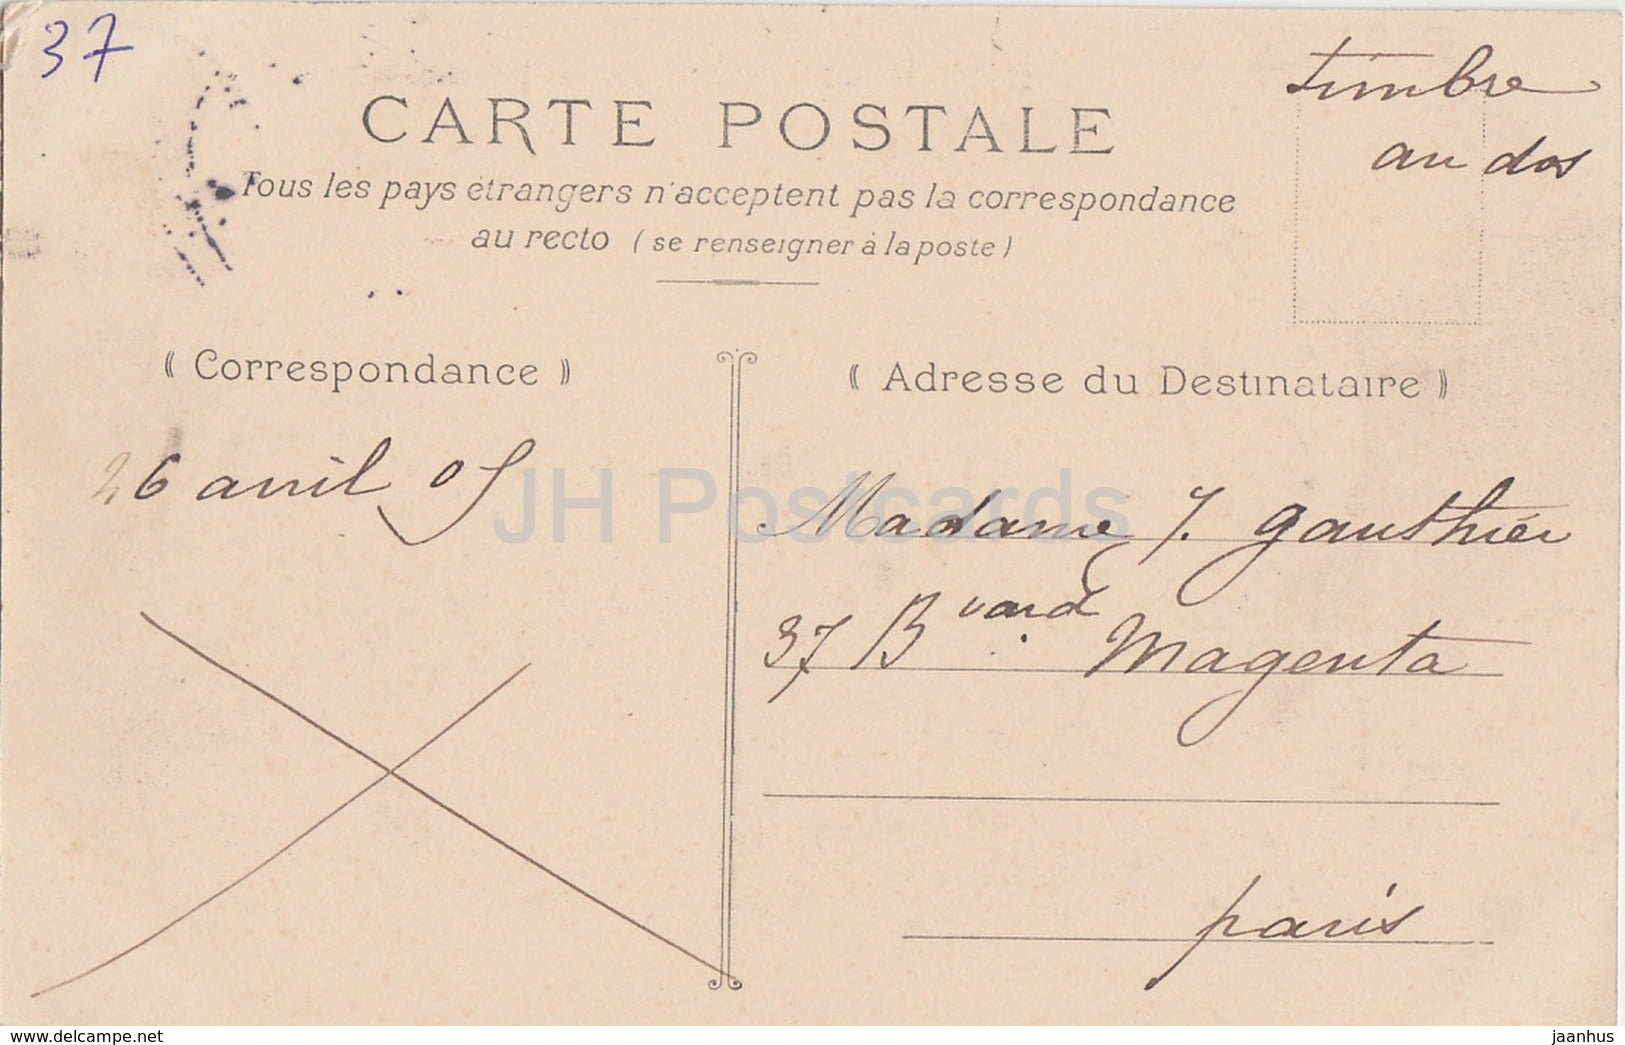 37
timbre
au dos
CARTE POSTALE
Tous les pays étrangers n'acceptent pas la correspondance
au recto (se renseigner à la poste)
⸨ Correspondance ⸩
26 avril 05
⸨ Adresse du Destinataire ⸩
Madame J. Gauthier
37 Bvard Magenta
paris
JH Postcards
www.delcampe.net
jaanhus